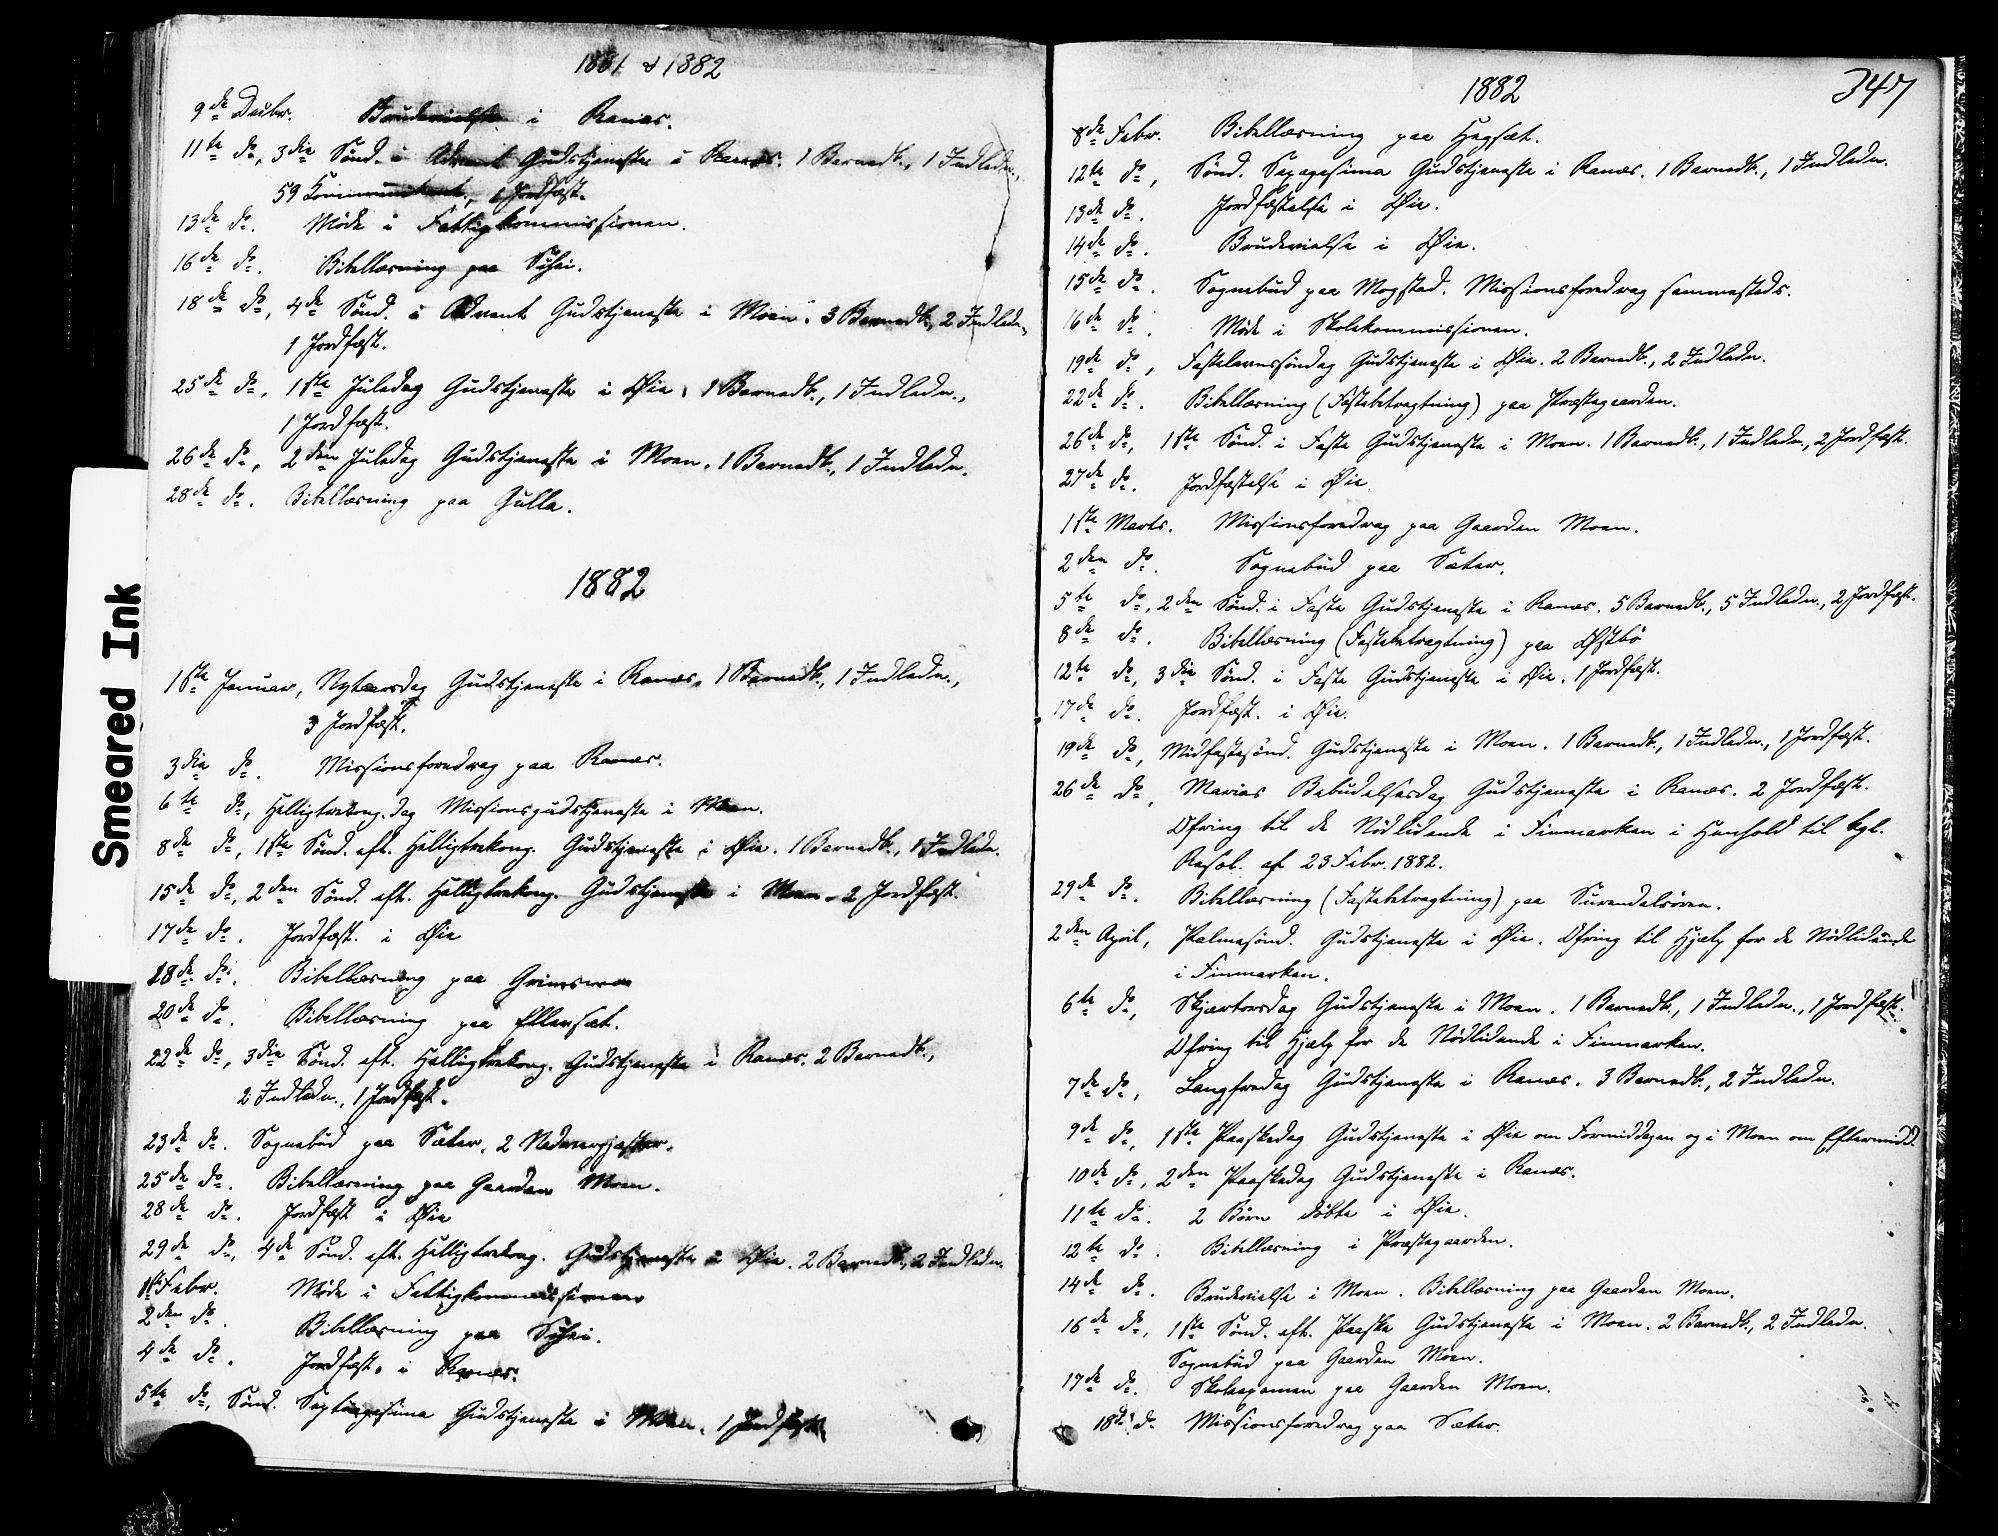 1881 & 1882
9de Decbr. Brudevielse i Ranæs.
11te do, 3die Sønd. i Advent Gudstjeneste i Ranæs. 1 Barnedb., 1 Indledn.,
59 Communicant., 1 Jordfæst.
13de do. Møde i Fattigkommissionen.
16de do. Bibellæsning paa
18de do, 4de Sønd. i Advent Gudstjeneste i Moen. 3 Barnedb., 2 Indledn.
1 Jordfæst.
25de do, 1ste Juledag Gudstjeneste i Øie. 1 Barnedb., 1 Indledn.,
1 Jordfæst.
26de do, 2den Juledag Gudstjeneste i Moen. 1 Barnedb., 1 Indledn.
28de do. Bibellæsning paa Gulla.
1882
1ste Januar, Nytaarsdag Gudstjeneste i Ranæs. 1 Barnedb., 1 Indledn.,
3 Jordfæst.
3die do. Missionsforedrag paa Ranæs.
6te do, Helligtrekong. dag Missionsgudstjeneste i Moen.
8de do, 1ste Sønd. eft. Helligtrekong. Gudstjeneste i Øie. 1 Barnedb., 1 Indledn.
15de do, 2den Sønd. eft. Helligtrekong. Gudstjeneste i Moen. 2 Jordfæst.
17de do. Jordfæst. i Øie
18de do. Bibellæsning paa Grimsmo
20de do. Bibellæsning paa Ellensæt.
22de do, 3die Sønd. eft. Helligtrekong. Gudstjeneste i Ranæs. 2 Barnedb.,
2 Indledn., 1 Jordfæst.
23de do. Sognebud paa Sæter. 2 Nadvergjæster.
25de do. Bibellæsning paa Gaarden Moen.
28de do. Jordfæst i Øie
29de do, 4de Sønd. eft. Helligtrekong. Gudstjeneste i Øie. 2 Barnedb., 2 Indledn.
1ste Febr. Møde i Fattigkommissionen
2den do. Bibellæsning paa
4de do. Jordfæst. i Ranæs.
5te do, Sønd. Septuagesima Gudstjeneste i Moen. 1 Jordfæst.
Smeared Ink
1882
347
8de Febr. Bibellæsning paa Hegsæt.
12te do, Sønd. Sexagesima Gudstjeneste i Ranæs. 1 Barnedb., 1 Indledn.
13de do. Jordfæstelse i Øie.
14de do. Brudevielse i Øie.
15de do. Sognebud paa Mogstad. Missionsforedrag sammesteds.
16de do. Møde i Skolekommissionen.
19de do, Fastelavnssøndag Gudstjeneste i Øie. 2 Barnedb., 2 Indledn.
22de do. Bibellæsning (Fastebetragtning) paa Præstegaarden.
26de do, 1ste Sønd. i Faste Gudstjeneste i Moen. 1 Barnedb., 1 Indledn., 2 Jordfæst.
27de do. Jordfæstelse i Øie.
1ste Marts. Missionsforedrag paa Gaarden Moen.
2den do. Sognebud paa Sæter.
5te do, 2den Sønd. i Faste Gudstjeneste i Ranæs. 5 Barnedb., 5 Indledn., 2 Jordfæst.
8de do. Bibellæsning (Fastebetragtning) paa Østbø
12te do, 3die Sønd. i Faste Gudstjeneste i Øie. 1 Jordfæst.
17de do. Jordfæst. i Øie.
19de do, Midfastesønd. Gudstjeneste i Moen. 1 Barnedb., 1 Indledn., 1 Jordfæst.
26de do, Marias Bebudelsesdag Gudstjeneste i Ranæs. 2 Jordfæst.
Ofring til de Nødlidende i Finmarken i Henhold til kgl.
Resol. af 23 Febr. 1882.
29de do. Bibellæsning (Fastebetragtning) paa Surendalsøren.
2den April, Palmesønd. Gudstjeneste i Øie. Ofring til Hjælp for de Nødlidende
i Finmarken.
6te do, Skjærtorsdag Gudstjeneste i Moen. 1 Barnedb., 1 Indledn., 1 Jordfæst.
Ofring til Hjælp for de Nødlidende i Finmarken.
7de do, Langfredag Gudstjeneste i Ranæs. 3 Barnedb., 2 Indledn.
9de do, 1ste Paaskedag Gudstjeneste i Øie om Formiddagen og i Moen om Eftermidd.
10de do, 2den Paaskedag Gudstjeneste i Ranæs.
11te do. 2 Børn døbte i Øie.
12te do. Bibellæsning i Præstegaarden.
14de do. Brudevielse i Moen. Bibellæsning paa Gaarden Moen.
16de do, 1ste Sønd. eft. Paaske Gudstjeneste i Moen. 2 Barnedb., 2 Indledn.
Sognebud paa Gaarden Moen.
17de do. Skoleexamen paa Gaarden Moen.
18de do. Missionsforedrag paa Sæter.